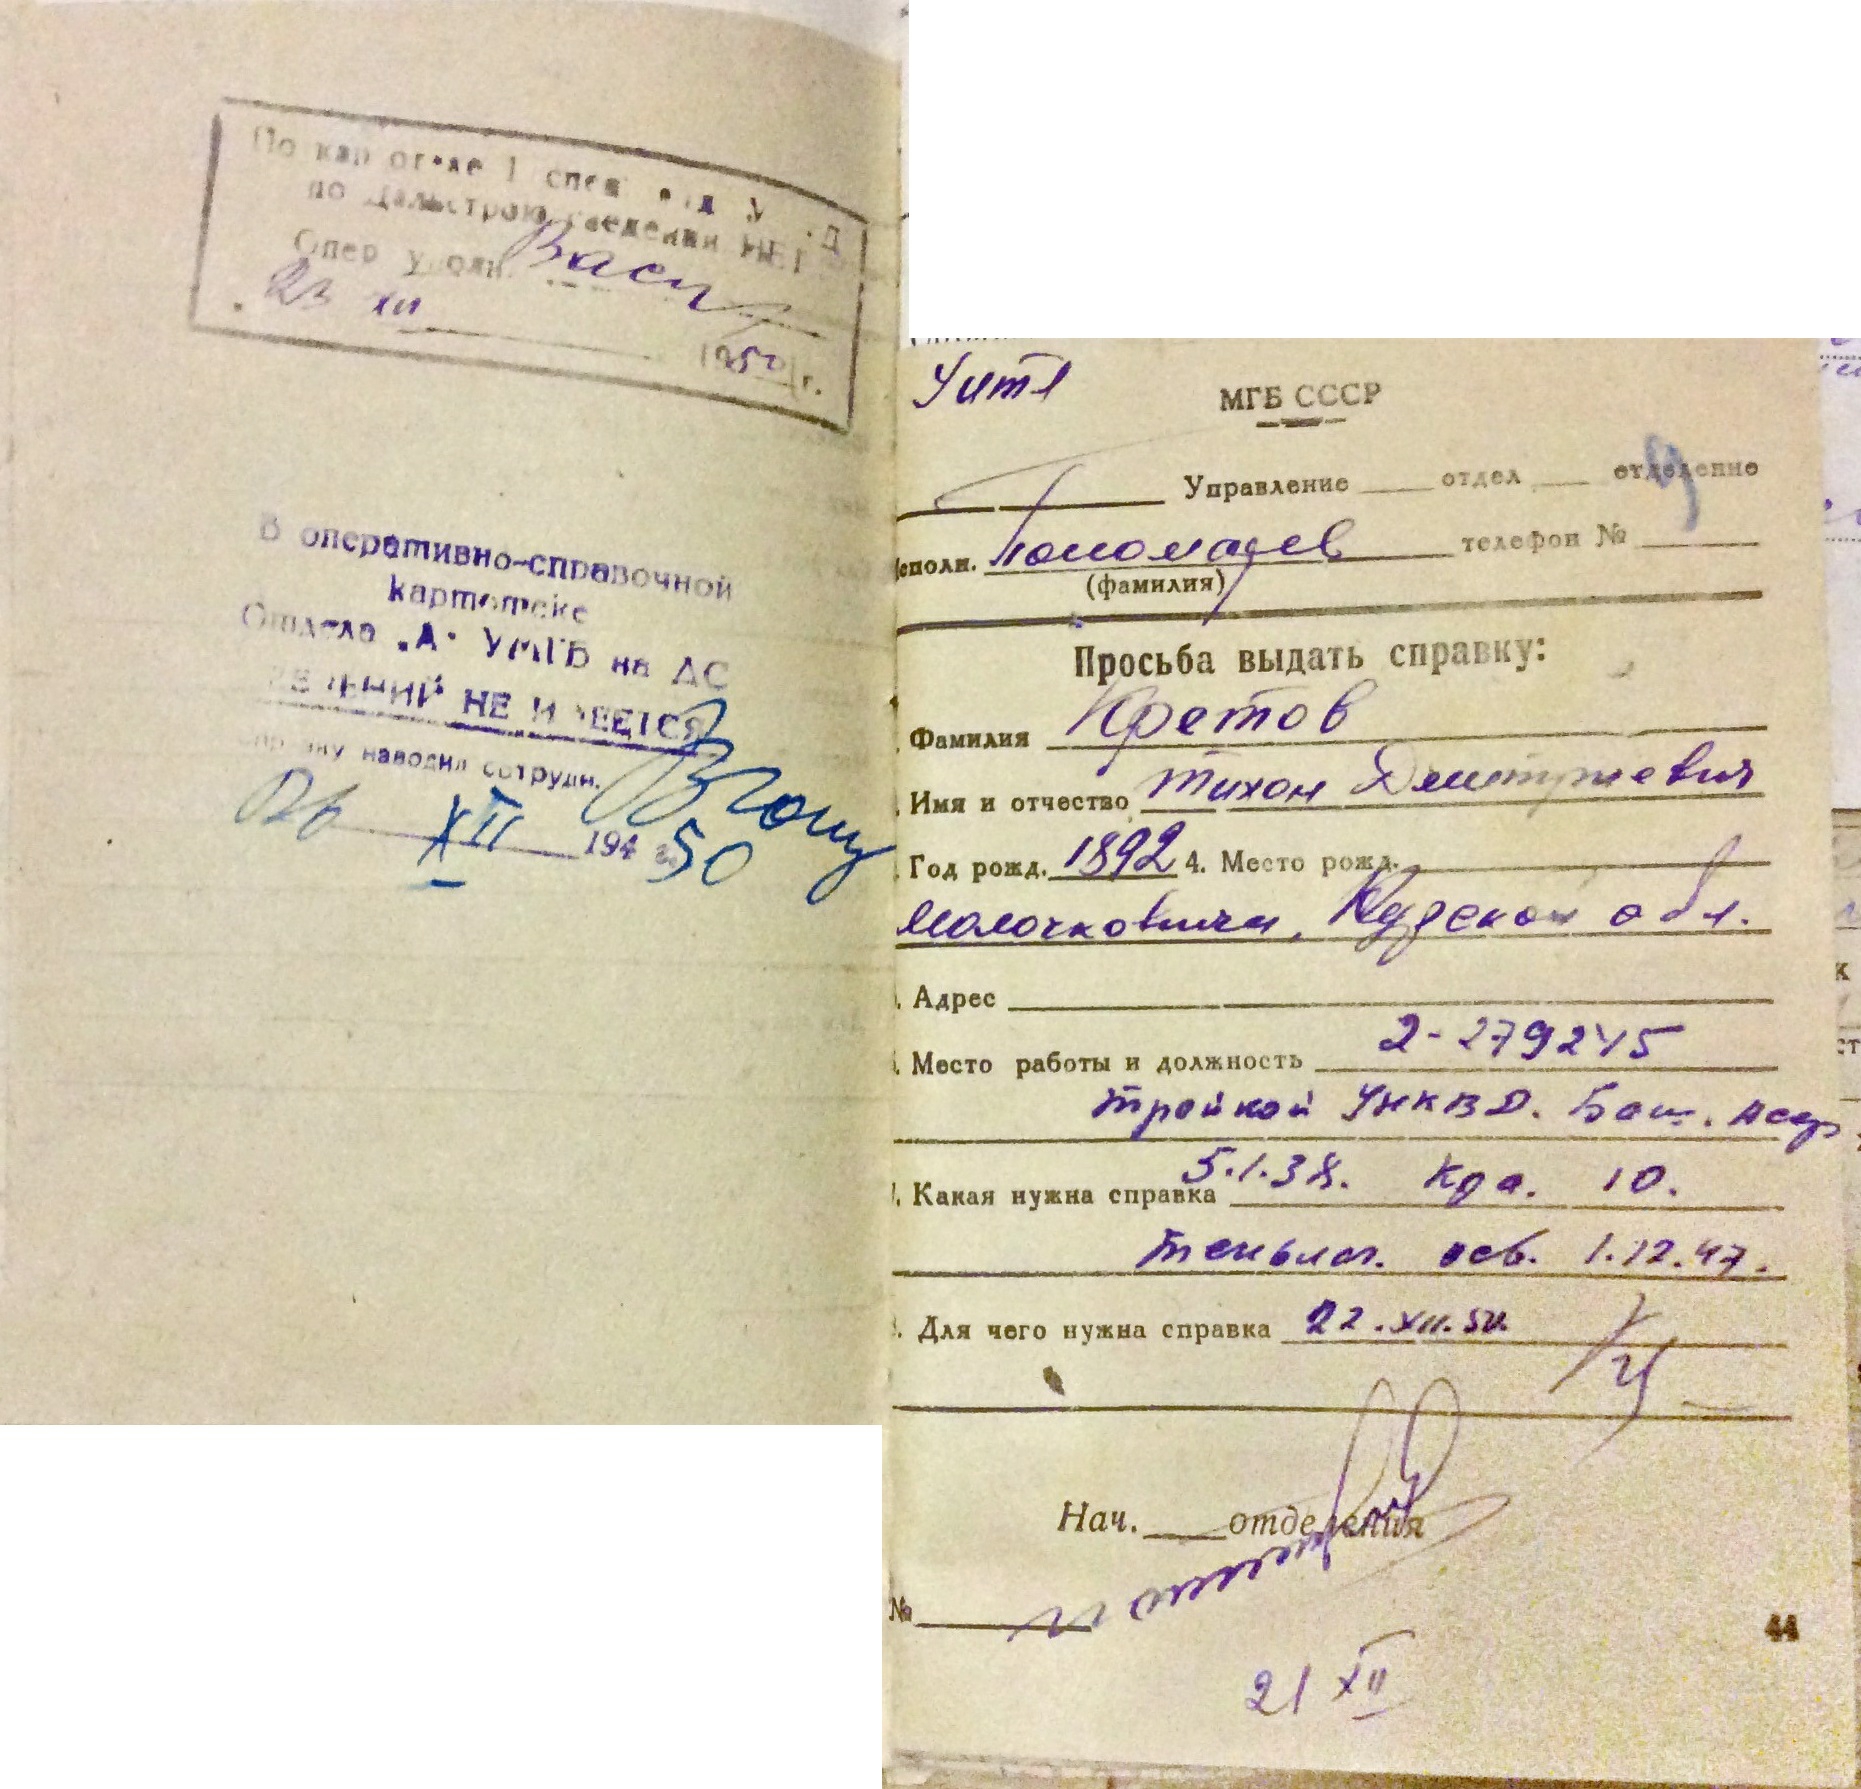 По картотеке 1 спец отд У Д
по Дальстрою сведений НЕТ
Опер уполн.
23 XII
1950 г.
В оперативно-справочной
картотеке
Отдела „А“ УМГБ на ДС
СВЕДЕНИЙ НЕ ИМЕЕТСЯ
справку наводил сотрудн.
26 XII 194 г. 50
УИТЛ
МГБ СССР
Управление отдел отделение
Исполн. Пономарев телефон №
(фамилия)
Просьба выдать справку:
Фамилия Кретов
Имя и отчество Тихон Дмитриевич
Год рожд. 1892 4. Место рожд.
Курской обл.
Адрес
Место работы и должность 2-279245
тройкой УНКВД. Баш. Асср
Какая нужна справка 5.1.38. кра. 10.
осв. 1.12.47.
Для чего нужна справка 22.XII.50.
Нач. отделения
№
44
21 XII